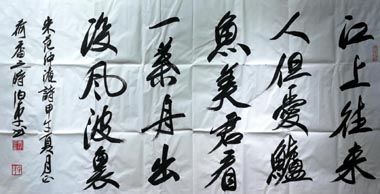 江上往来
人但愛鱸
魚美君看
一葉舟出
沒風波裏
宋范仲淹詩甲午夏月
荷香之時